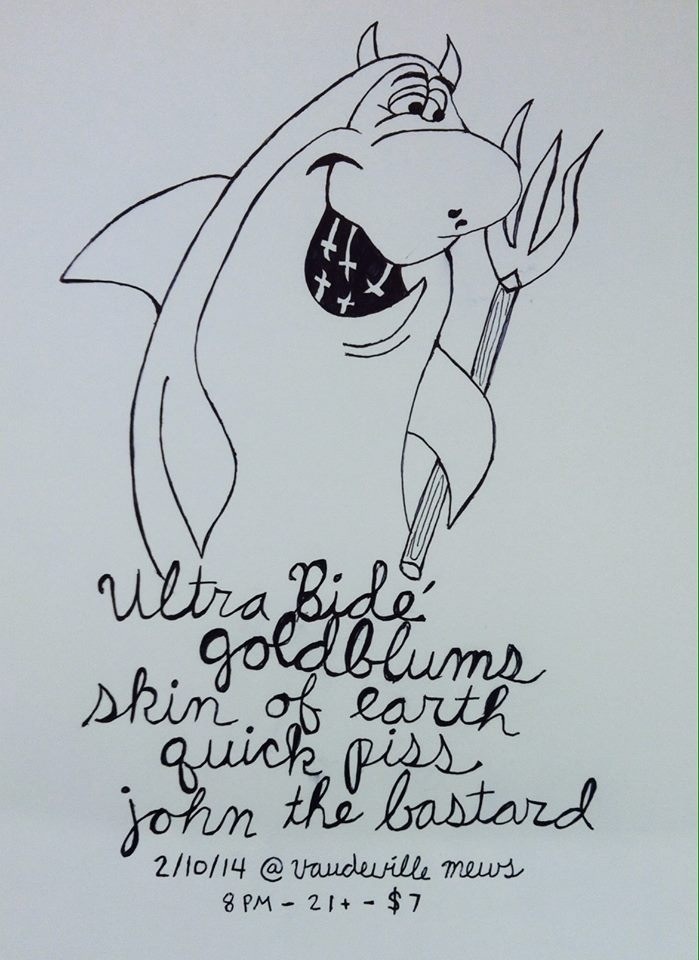 Ultra Bidé
goldblums
skin of earth
quick piss
john the bastard
2/10/14 @ vaudeville mews
8 PM - 21+ - $7